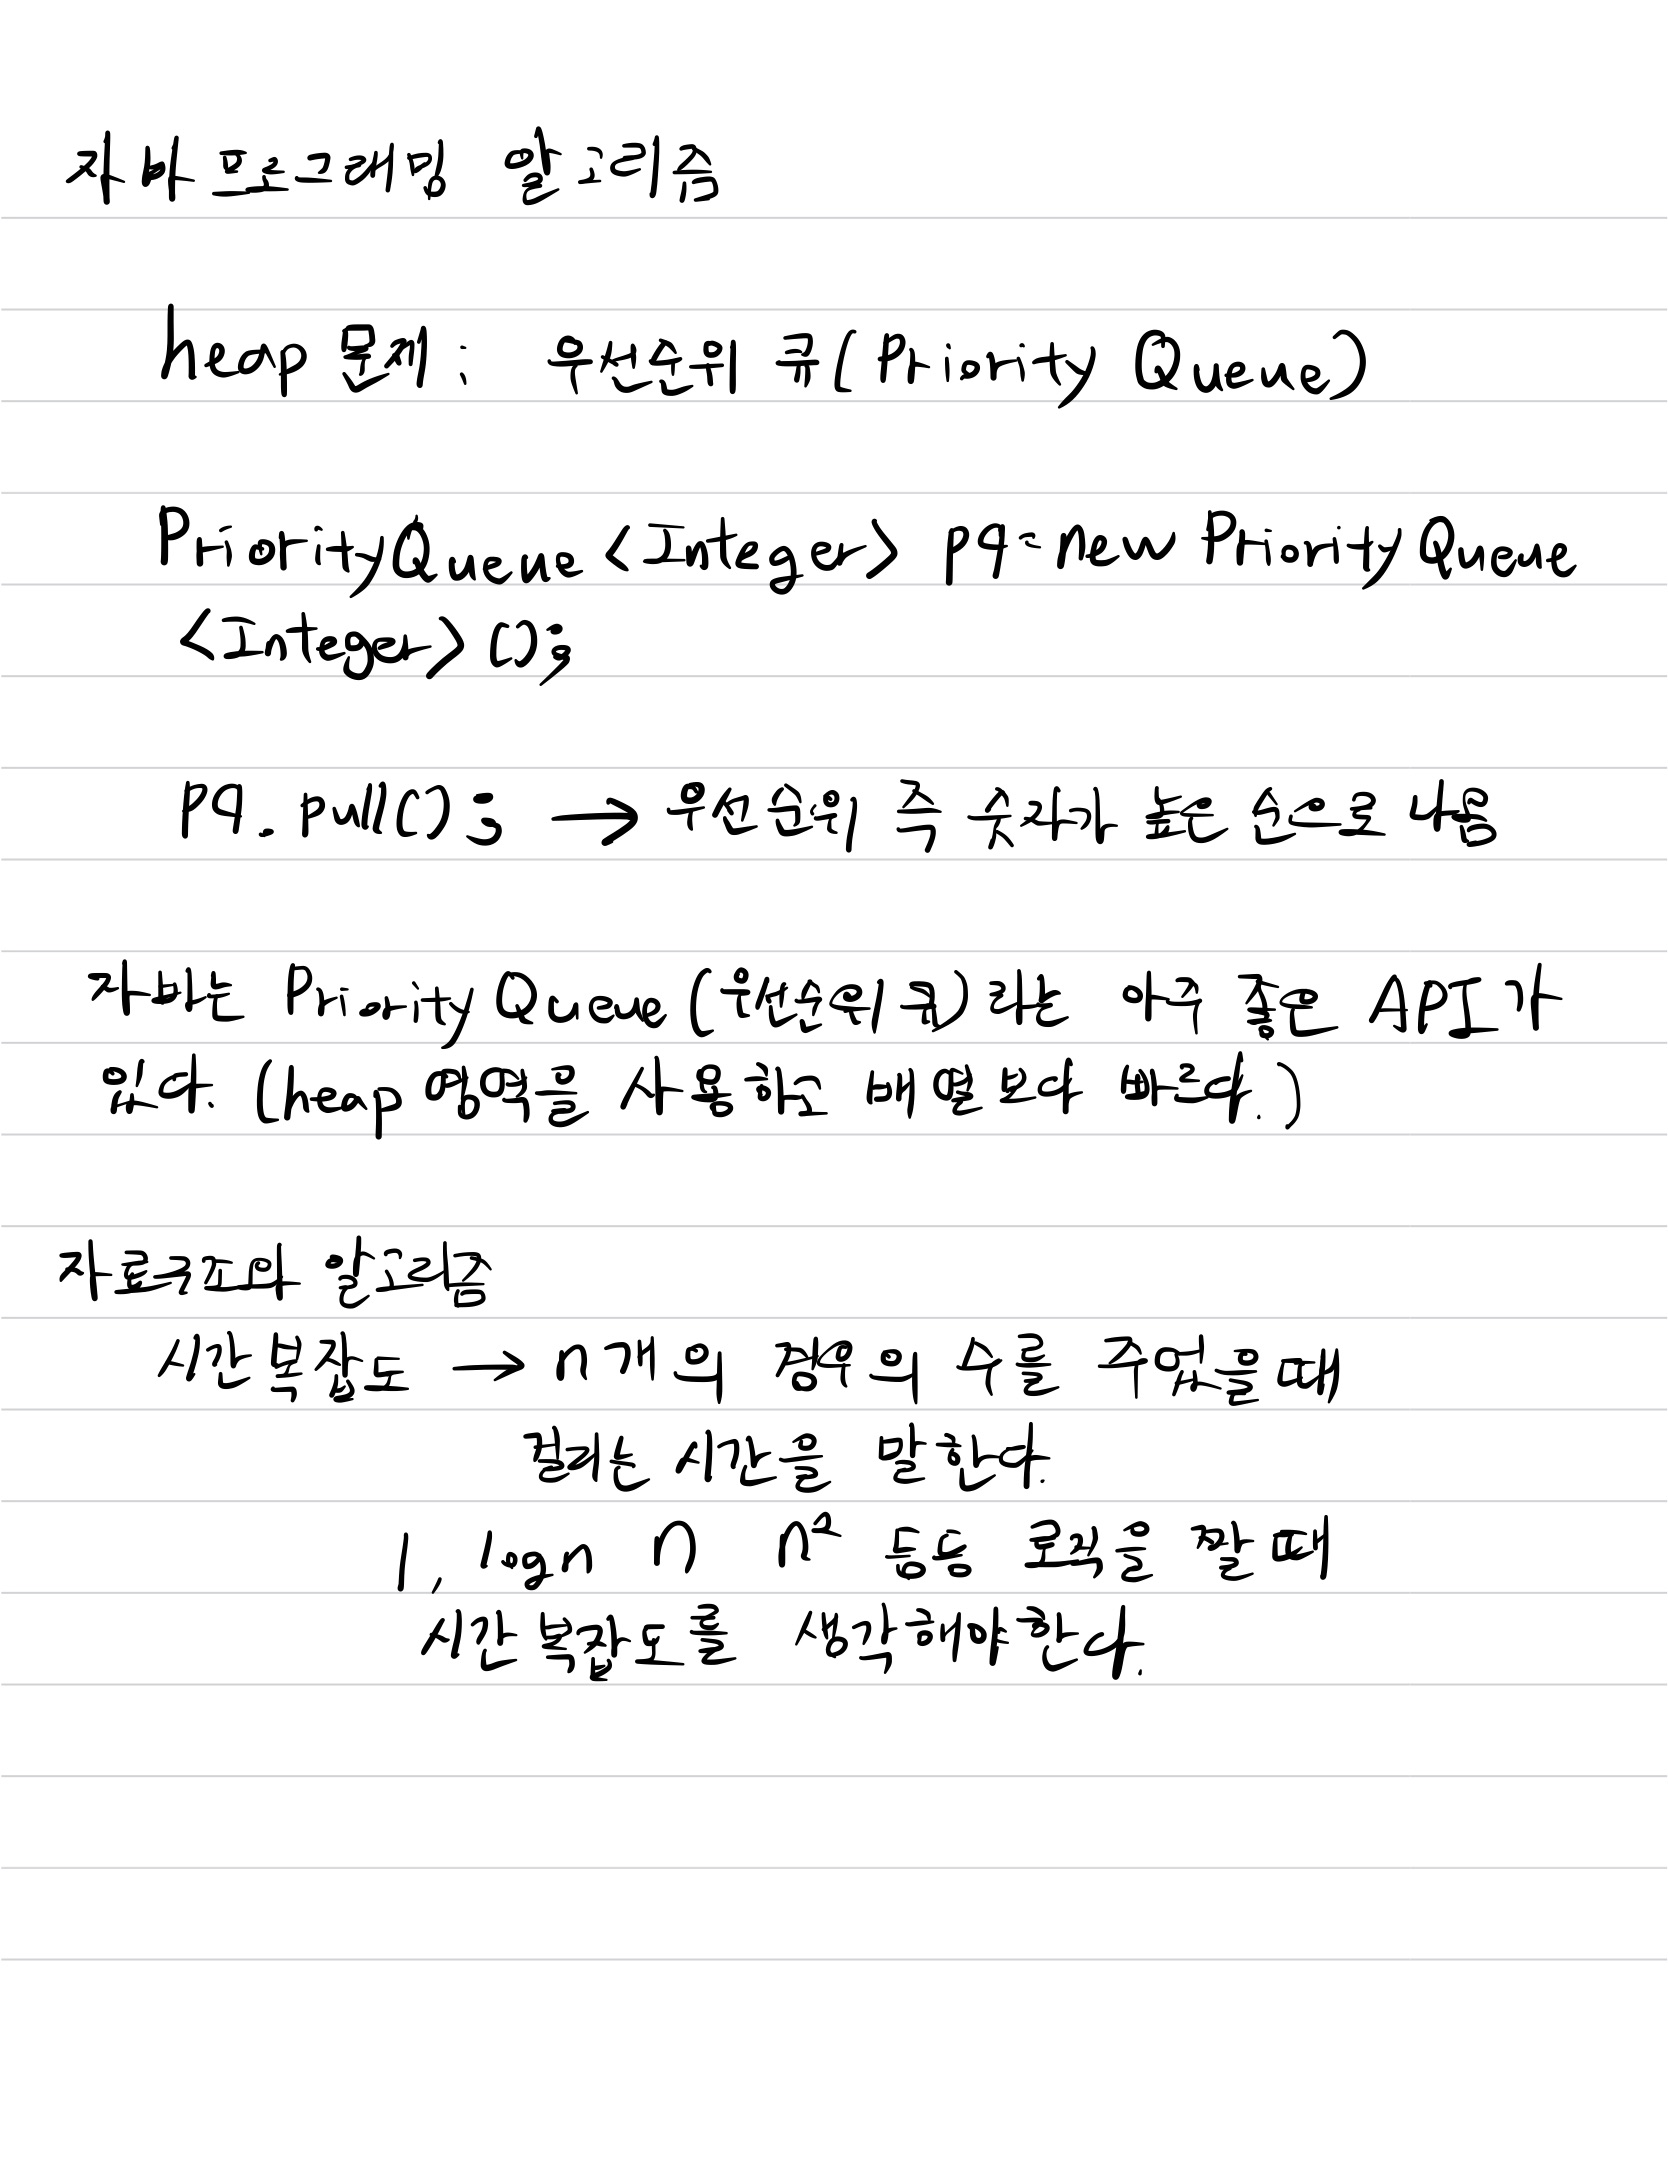 자바 프로그래밍 알고리즘
heap 문제: 우선순위 큐(Priority Queue)
PriorityQueue <Integer> pq=new PriorityQueue
<Integer>();
pq.pull(); → 우선순위 즉 숫자가 높은 순으로 나옴
자바는 Priority Queue (우선순위 큐)라는 아주 좋은 API가
있다. (heap 영역을 사용하고 배열보다 빠르다.)
자료구조와 알고리즘
시간복잡도 → n개의 경우의 수를 주었을때
걸리는 시간을 말한다.
1, logn n n² 등등 로직을 짤 때
시간 복잡도를 생각해야한다.